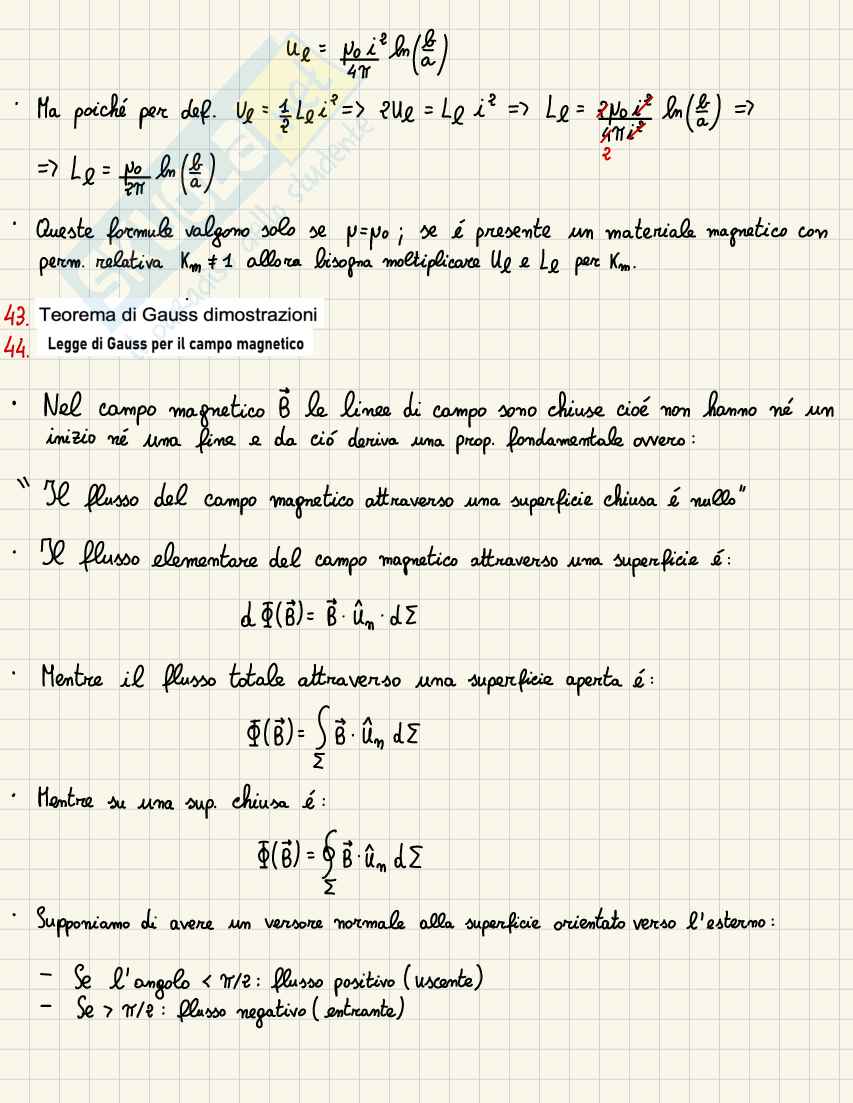 U_ℓ = μ₀ i² / 4π ln(b/a)
· Ma poiché per def. U_ℓ = 1/2 L_ℓ i² => 2U_ℓ = L_ℓ i² => L_ℓ = 2μ₀ i² / 4π i² ln(b/a) =>
2
=> L_ℓ = μ₀ / 2π ln(b/a)
· Queste formule valgono solo se μ=μ₀ ; se é presente un materiale magnetico con
perm. relativa Kₘ ≠ 1 allora bisogna moltiplicare U_ℓ e L_ℓ per Kₘ.
43. Teorema di Gauss dimostrazioni
44. Legge di Gauss per il campo magnetico
· Nel campo magnetico B⃗ le linee di campo sono chiuse cioé non hanno né un
inizio né una fine e da ció deriva una prop. fondamentale ovvero :
" Il flusso del campo magnetico attraverso una superficie chiusa é nullo"
· Il flusso elementare del campo magnetico attraverso una superficie é :
d Φ(B⃗) = B⃗ · ûₙ · dΣ
· Mentre il flusso totale attraverso una superficie aperta é :
Φ(B⃗) = ∫_Σ B⃗ · ûₙ dΣ
· Mentre su una sup. chiusa é :
Φ(B⃗) = ∮_Σ B⃗ · ûₙ dΣ
· Supponiamo di avere un versore normale alla superficie orientato verso l'esterno :
- Se l'angolo < π/2 : flusso positivo ( uscente)
- Se > π/2 : flusso negativo ( entrante)